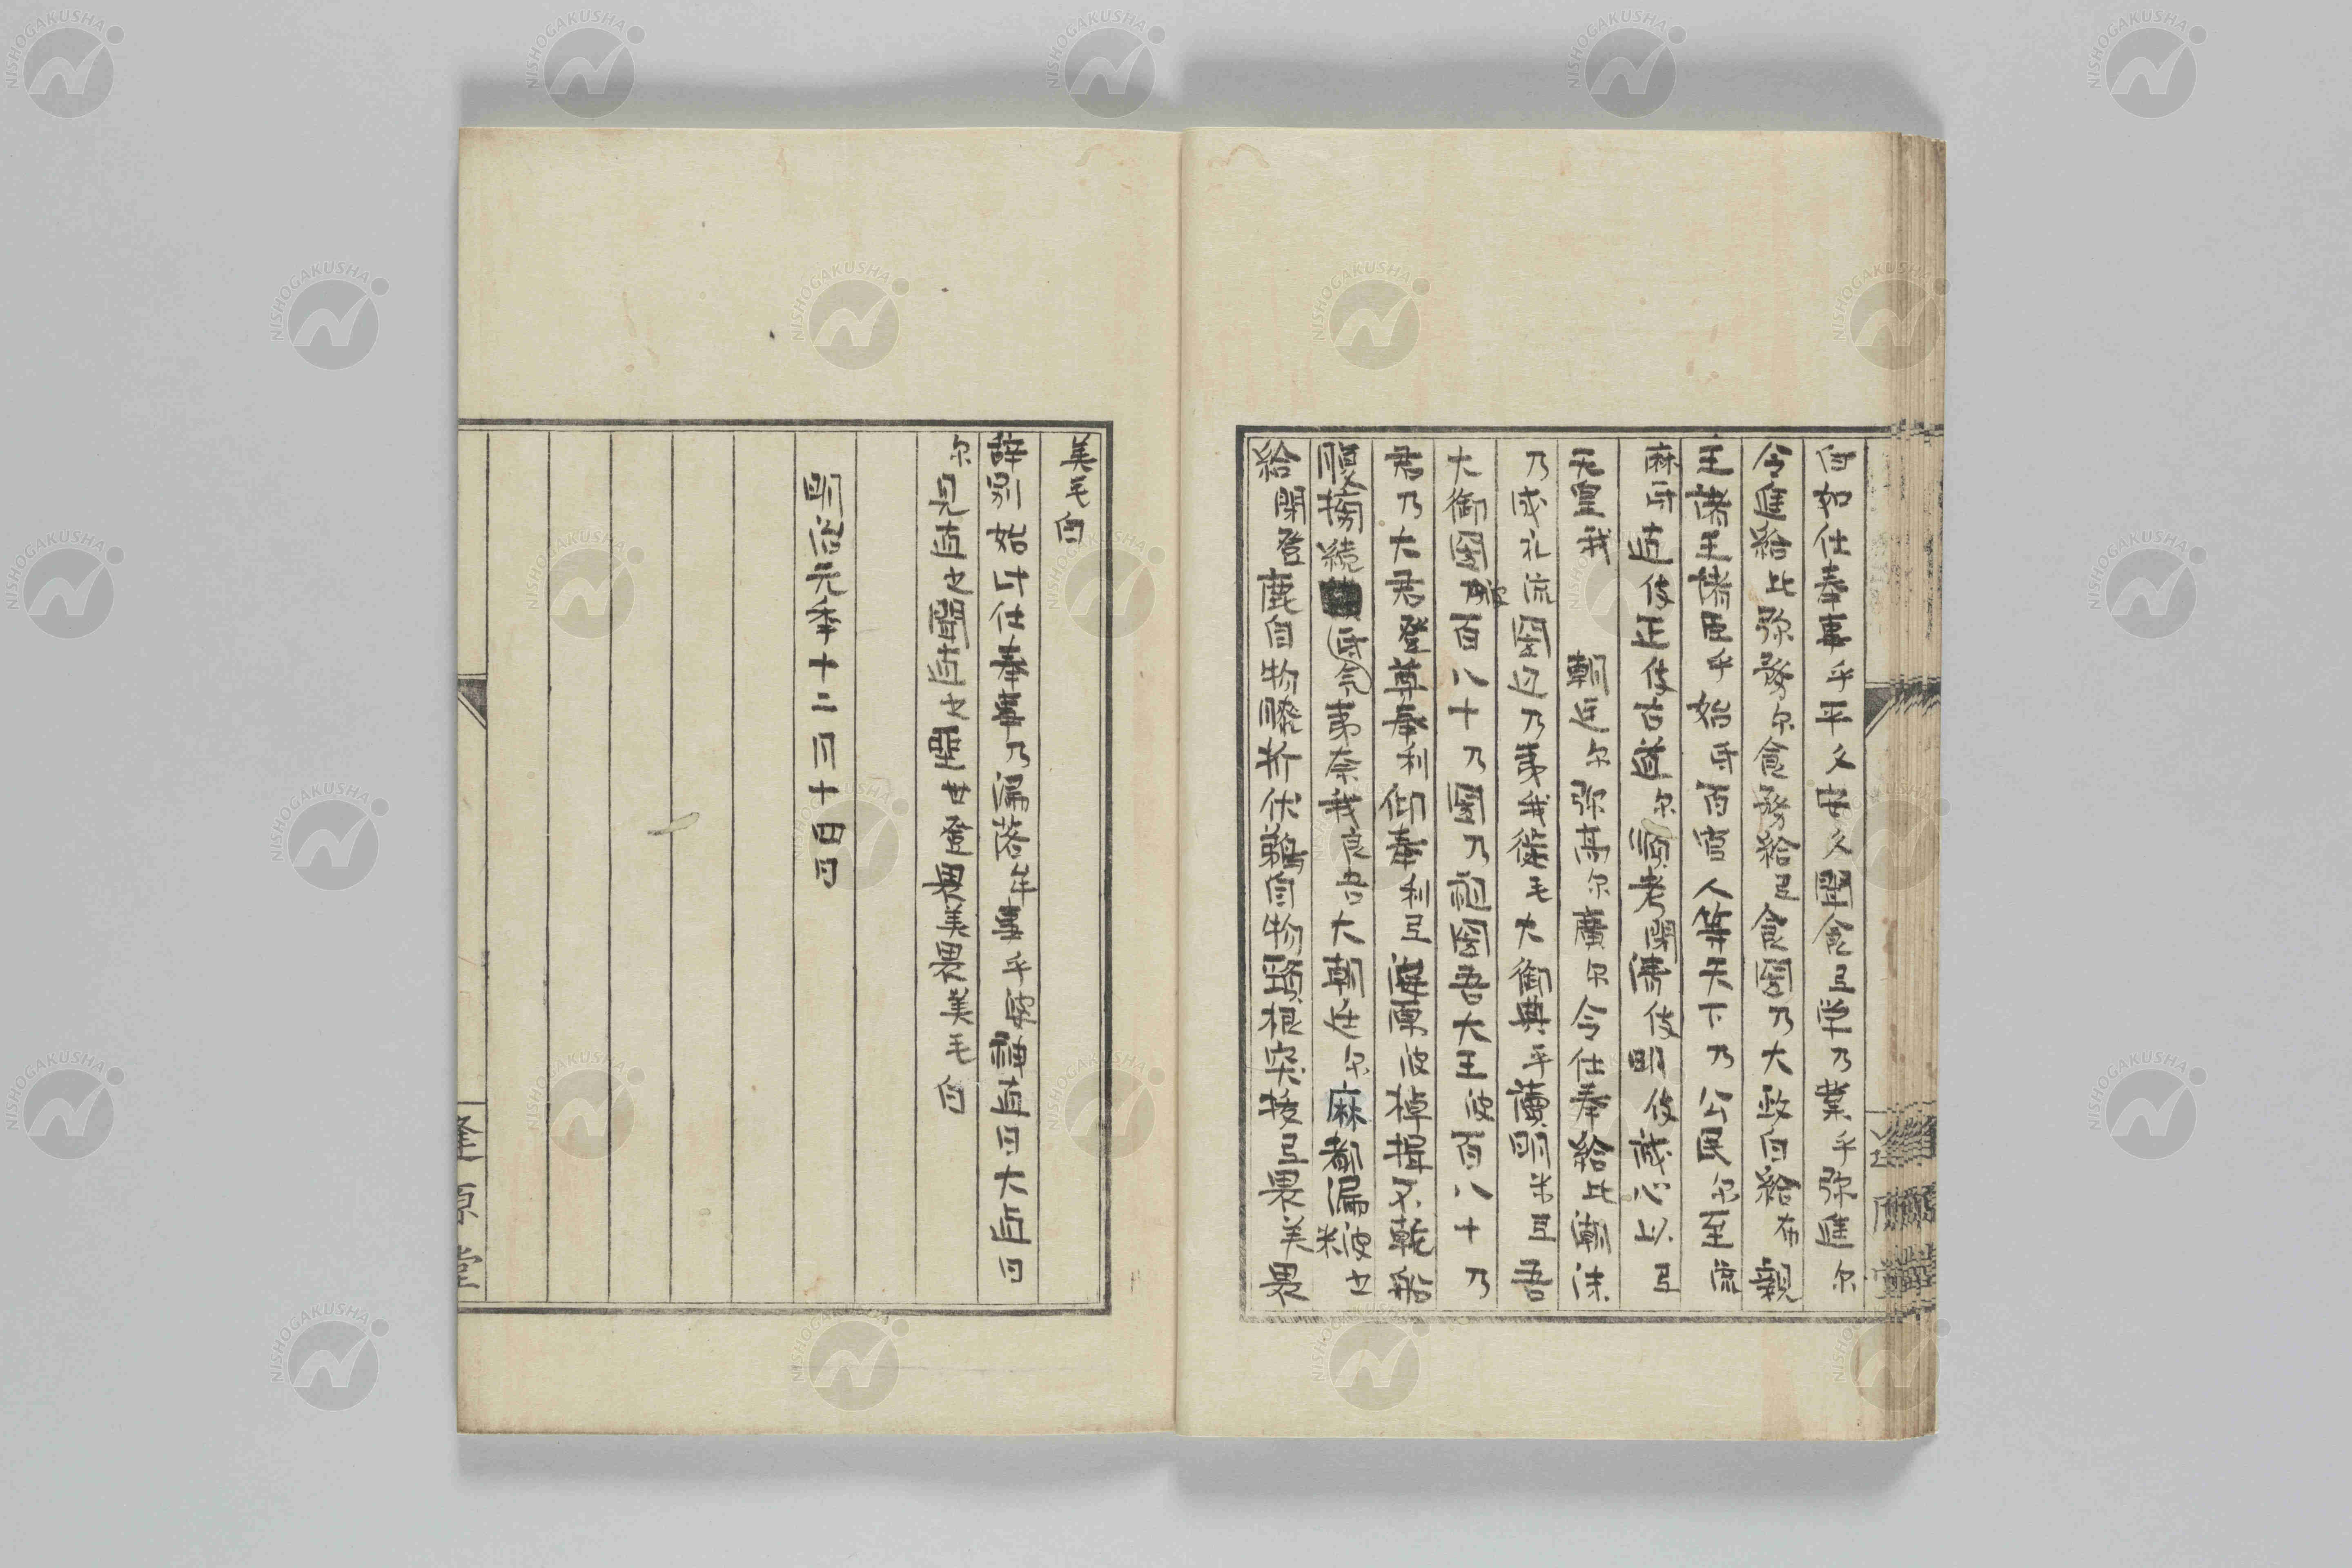 白如仕奉事乎平久安久聞食弖学乃業乎弥進尔
令進給比弥務尔食務給弖食國乃大政白給布親
王諸王諸臣乎始氐百官人等天下乃公民尔至流
麻氐邊伎正伎古道尔順考閇清伎明伎誠心以弖
天皇我　朝廷尔弥高尔廣尔令仕奉給比潮沫
乃成礼流國邊乃夷我徒毛大御典乎讀明米弖吾
大御國波百八十乃國乃祖國吾大王波百八十乃
君乃大君登尊奉利仰奉利弖海原波棹揖不乾船
腹榜續氐令夷奈我良吾大朝廷尔麻都漏波米
給閇登鹿自物膝折伏鵜自物頸根突抜弖畏美畏
美毛白
辞別始氐仕奉事乃漏落牟事乎婆神直日大直日
尔見直之聞直之坐世登畏美畏美毛白
明治元年十二月十四日
原堂
NISHOGAKUSHA